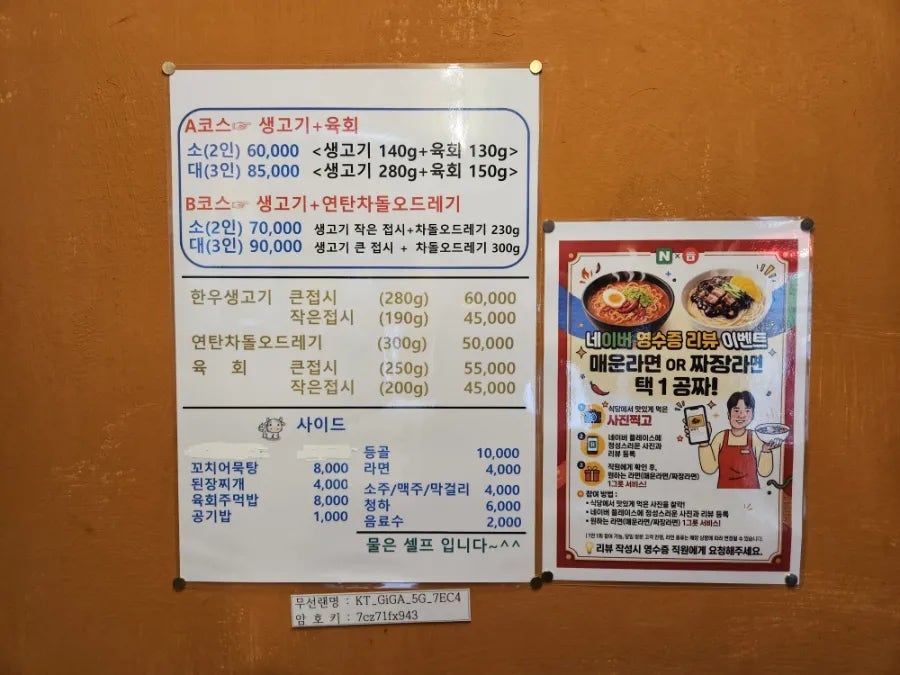 A코스☞ 생고기+육회
소(2인) 60,000 <생고기 140g+육회 130g>
대(3인) 85,000 <생고기 280g+육회 150g>
B코스☞ 생고기+연탄차돌오드레기
소(2인) 70,000 생고기 작은 접시+차돌오드레기 230g
대(3인) 90,000 생고기 큰 접시 + 차돌오드레기 300g
한우생고기 큰접시 (280g) 60,000
작은접시 (190g) 45,000
연탄차돌오드레기 (300g) 50,000
육 회 큰접시 (250g) 55,000
작은접시 (200g) 45,000
사이드
꼬치어묵탕 8,000
된장찌개 4,000
육회주먹밥 8,000
공기밥 1,000
등골 10,000
라면 4,000
소주/맥주/막걸리 4,000
청하 6,000
음료수 2,000
물은 셀프 입니다~^^
무선랜명 : KT_GiGA_5G_7EC4
암 호 키 : 7cz71fx943
N×
네이버 영수증 리뷰 이벤트
매운라면 OR 짜장라면
택 1 공짜!
1
식당에서 맛있게 먹은
사진찍고
2
네이버 플레이스에
정성스러운 사진과
리뷰 등록
3
직원에게 확인 후,
원하는 라면(매운라면/짜장라면)
1그릇 서비스!
참여 방법 :
• 식당에서 맛있게 먹은 사진을 찰칵!
• 네이버 플레이스에 정성스러운 사진과 리뷰 등록
• 원하는 라면(매운라면/짜장라면) 1그릇 서비스!
리뷰 작성시 영수증 직원에게 요청해주세요.